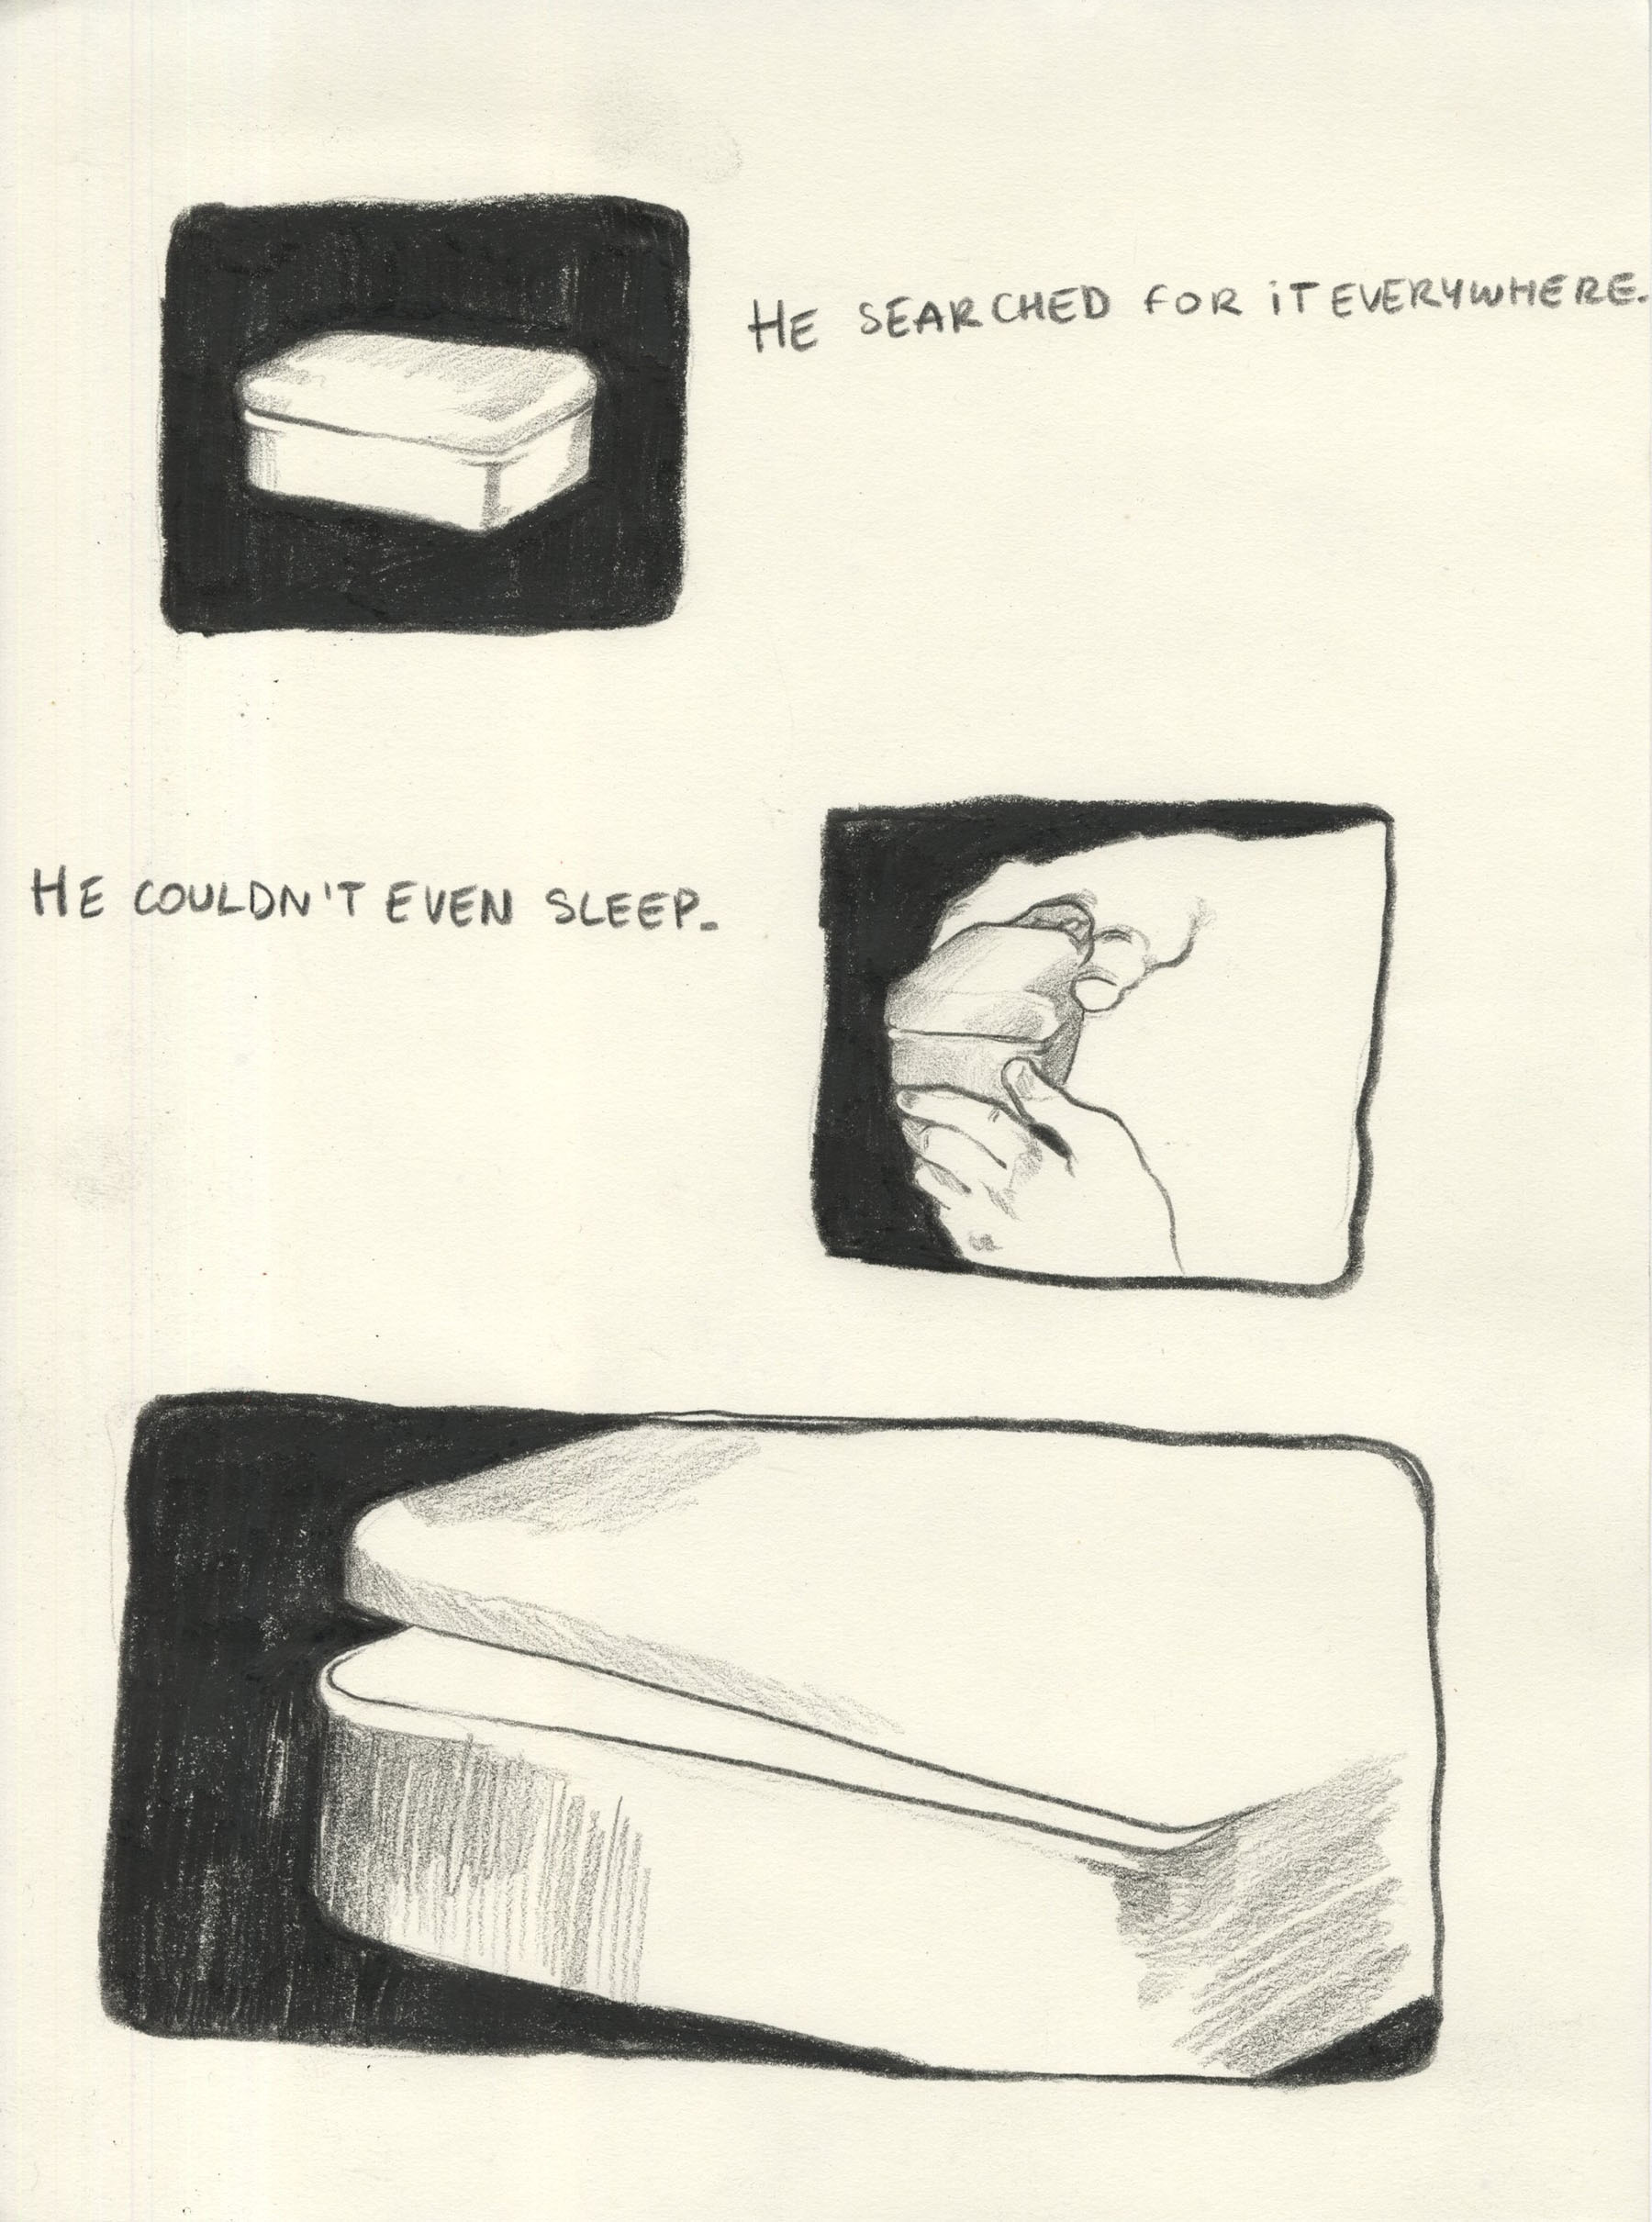 HE SEARCHED FOR iT EVERYWHERE.
HE COULDN'T EVEN SLEEP.